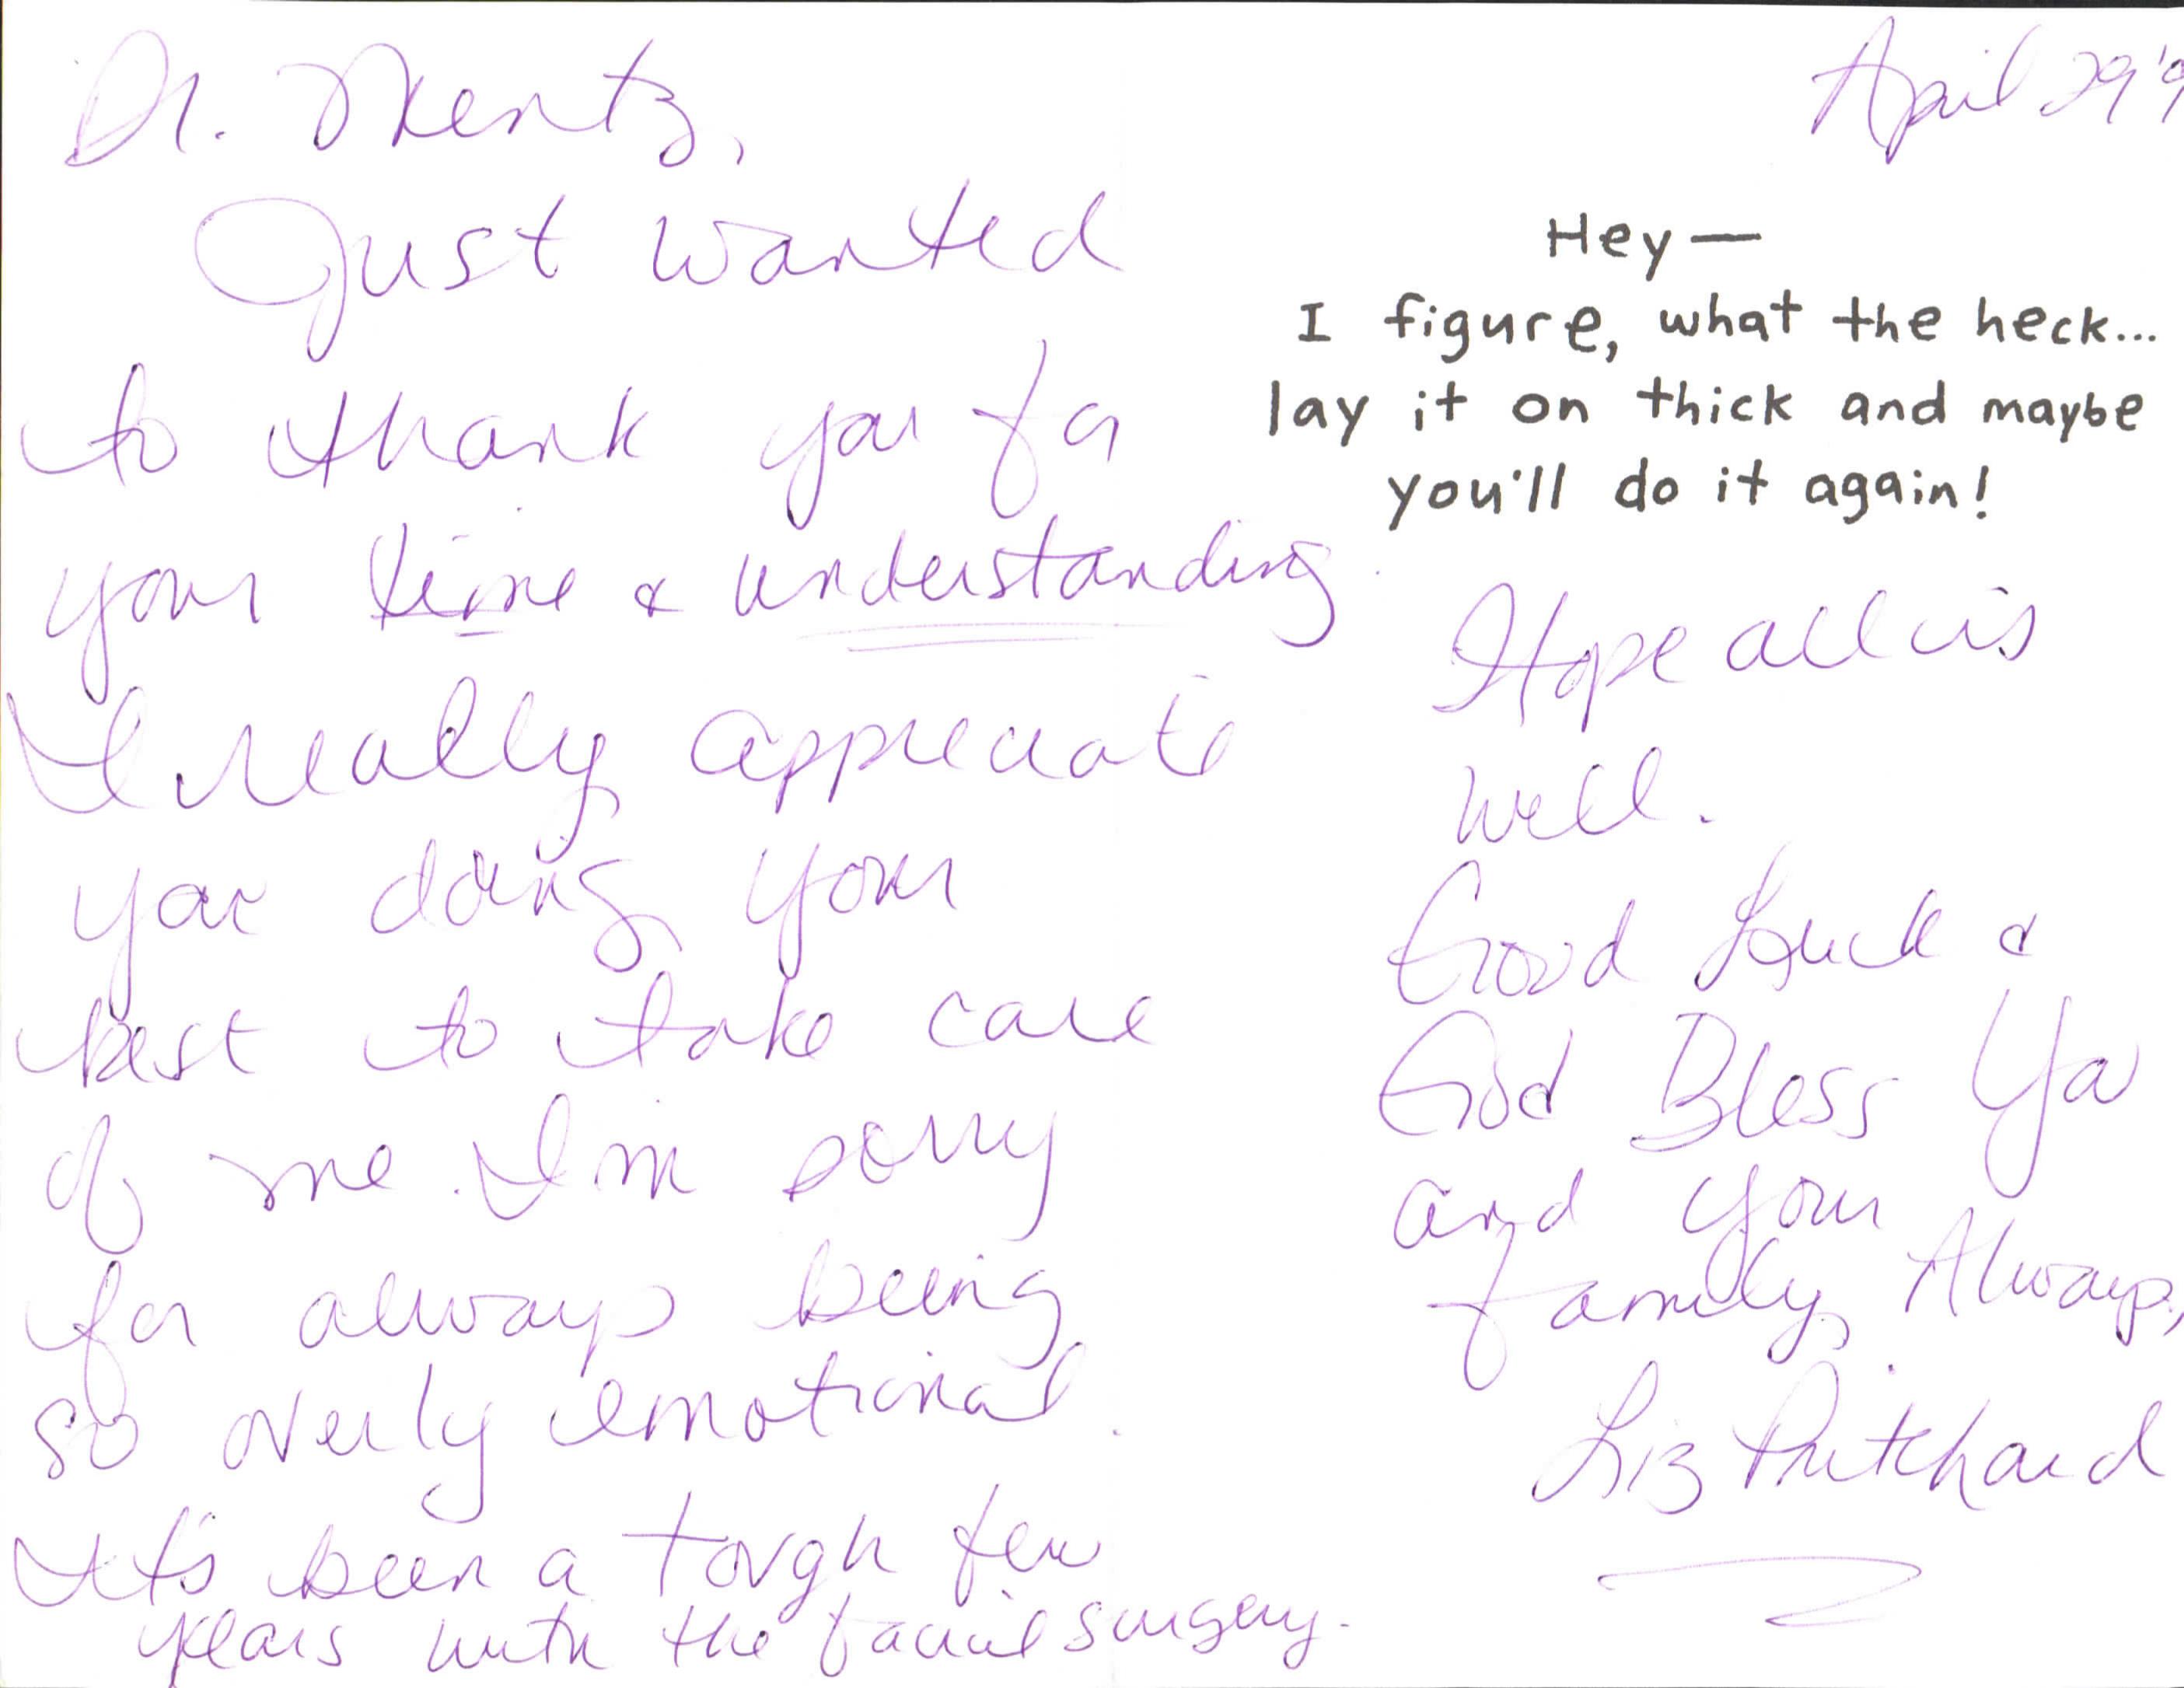 Dr. Mentz,
Just wanted
to thank you for
your time & understanding.
I really appreciate
you doing your
best to take care
of me. I'm sorry
for always being
so overly emotional.
It's been a tough few
years with the facial surgery.
April 29 '9
Hey—
I figure, what the heck...
lay it on thick and maybe
you'll do it again!
Hope all is
well.
Good Luck &
God Bless Ya
and your
family, Always,
Liz Pritchard